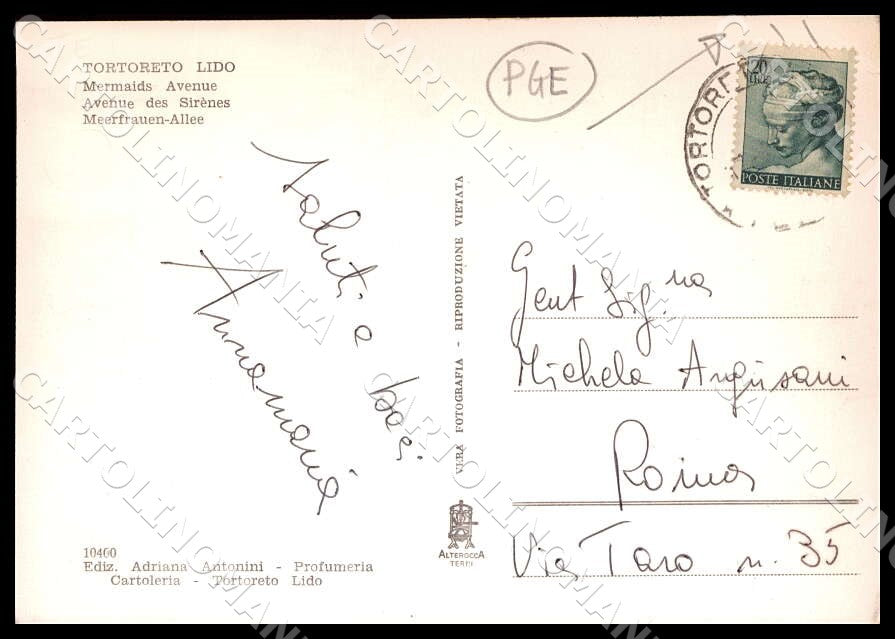 TORTORETO LIDO
Mermaids Avenue
Avenue des Sirènes
Meerfrauen-Allee
PGE
20
LIRE
POSTE ITALIANE
TORTORE
Saluti e baci
Annamaria
VERA FOTOGRAFIA - RIPRODUZIONE VIETATA
Gent Sig.na
Michela Angrisani
Roma
Via Taro n. 35
10460
Ediz. Adriana Antonini - Profumeria
Cartoleria - Tortoreto Lido
ALTEROCCA
TERNI
CARTOLINOMANIA